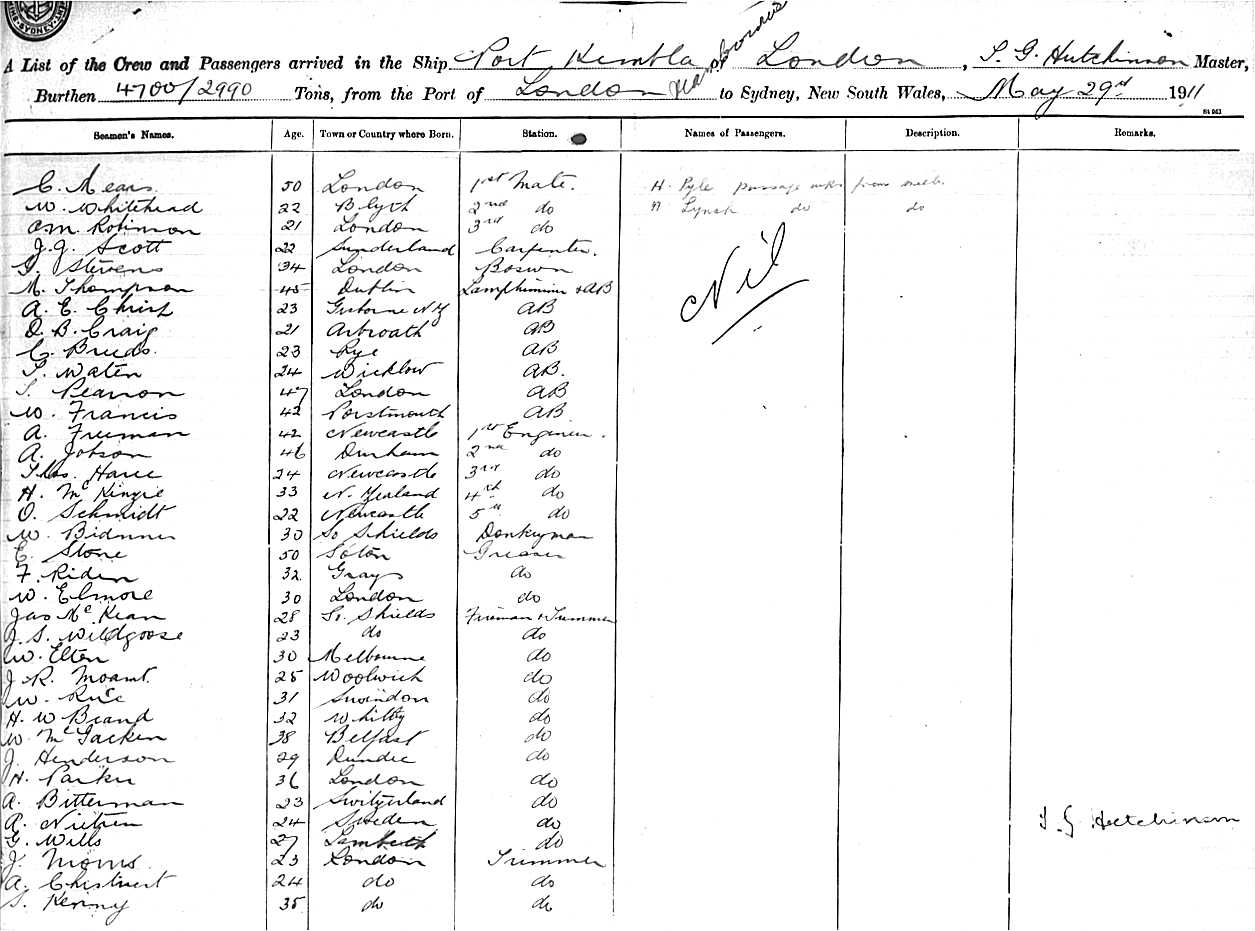 SYDNEY
A List of the Crew and Passengers arrived in the Ship Port Kembla of London, T. G. Hutchinson Master,
Burthen 4700/2990 Tons, from the Port of London to Sydney, New South Wales, May 29 1911
Seamen's Names. Age. Town or Country where Born. Station. Names of Passengers. Description. Remarks.
C. Mears 50 London 1st Mate. H. Pyle passage from Melb.
W. Whitehead 22 Blyth 2nd do Lynch do do
Robinson 21 London 3rd do
J. J. Scott 22 Sunderland Carpenter.
Stevens 34 London Boswn
M. Thompson 45 Dublin Lamptrimmer & AB
Nil
A. E. Christ 23 Gisborne NZ AB
D. B. Craig 21 Arbroath AB
C. Breeds 23 Rye AB
Waten 24 Wicklow AB.
Pearson 47 London AB
W. Francis 42 Porstmouth AB
A. Freeman 42 Newcastle 1st Engineer.
A. Jobson 46 Durham 2nd do
Thos. 24 Newcastle 3rd do
H. McKinzie 33 N. Zealand 4th do
O. Schmidt 22 Newcastle 5th do
W. 30 So Shields Donkeyman
E. Stone 50 Soton Greaser
F. Riden 32 Grays do
W. Elmore 30 London do
Jas McKean 28 So. Shields Fireman & Trimmer
J. S. Wildgoose 23 do do
W. Elten 30 Melbourne do
J. R. 25 Woolwich do
W. 31 Swindon do
H. W Brand 32 Whitby do
W. McCracken 38 Belfast do
J. Henderson 29 Dundee do
H. Parker 36 London do
A. Bitterman 23 Switzerland do
24 Sweden do T G Hutchinson
G. Wills 27 Lambeth do
J. Morris 23 London Trimmer
A. Chestnut 24 do do
Kenny 35 do do